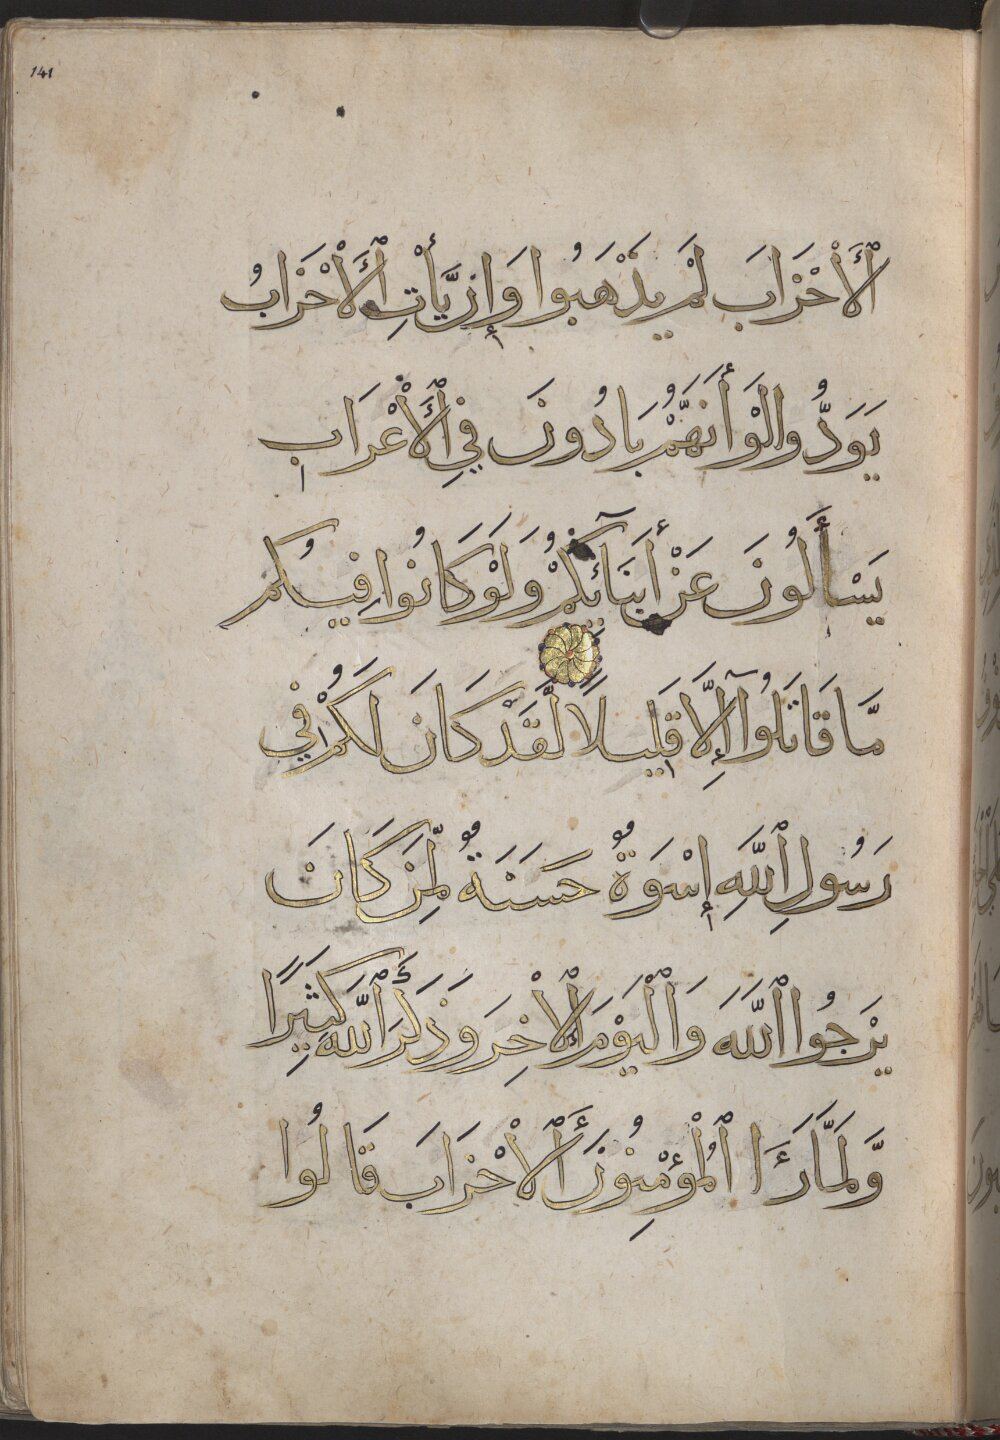 141
ٱلْأَحْزَابَ لَمْ يَذْهَبُوا وَإِن يَّأْتِ ٱلْأَحْزَابُ
يَوَدُّوا لَوْ أَنَّهُمْ بَادُونَ فِي ٱلْأَعْرَابِ
يَسْأَلُونَ عَنْ أَنبَآئِكُمْ وَلَوْ كَانُوا فِيكُم
مَّا قَاتَلُوٓا إِلَّا قَلِيلًا لَّقَدْ كَانَ لَكُمْ فِي
رَسُولِ ٱللَّهِ إِسْوَةٌ حَسَنَةٌ لِّمَن كَانَ
يَرْجُوا ٱللَّهَ وَٱلْيَوْمَ ٱلْأَخِرَ وَذَكَرَ ٱللَّهَ كَثِيرًا
وَّلَمَّا رَءَا ٱلْمُؤْمِنُونَ ٱلْأَحْزَابَ قَالُوا